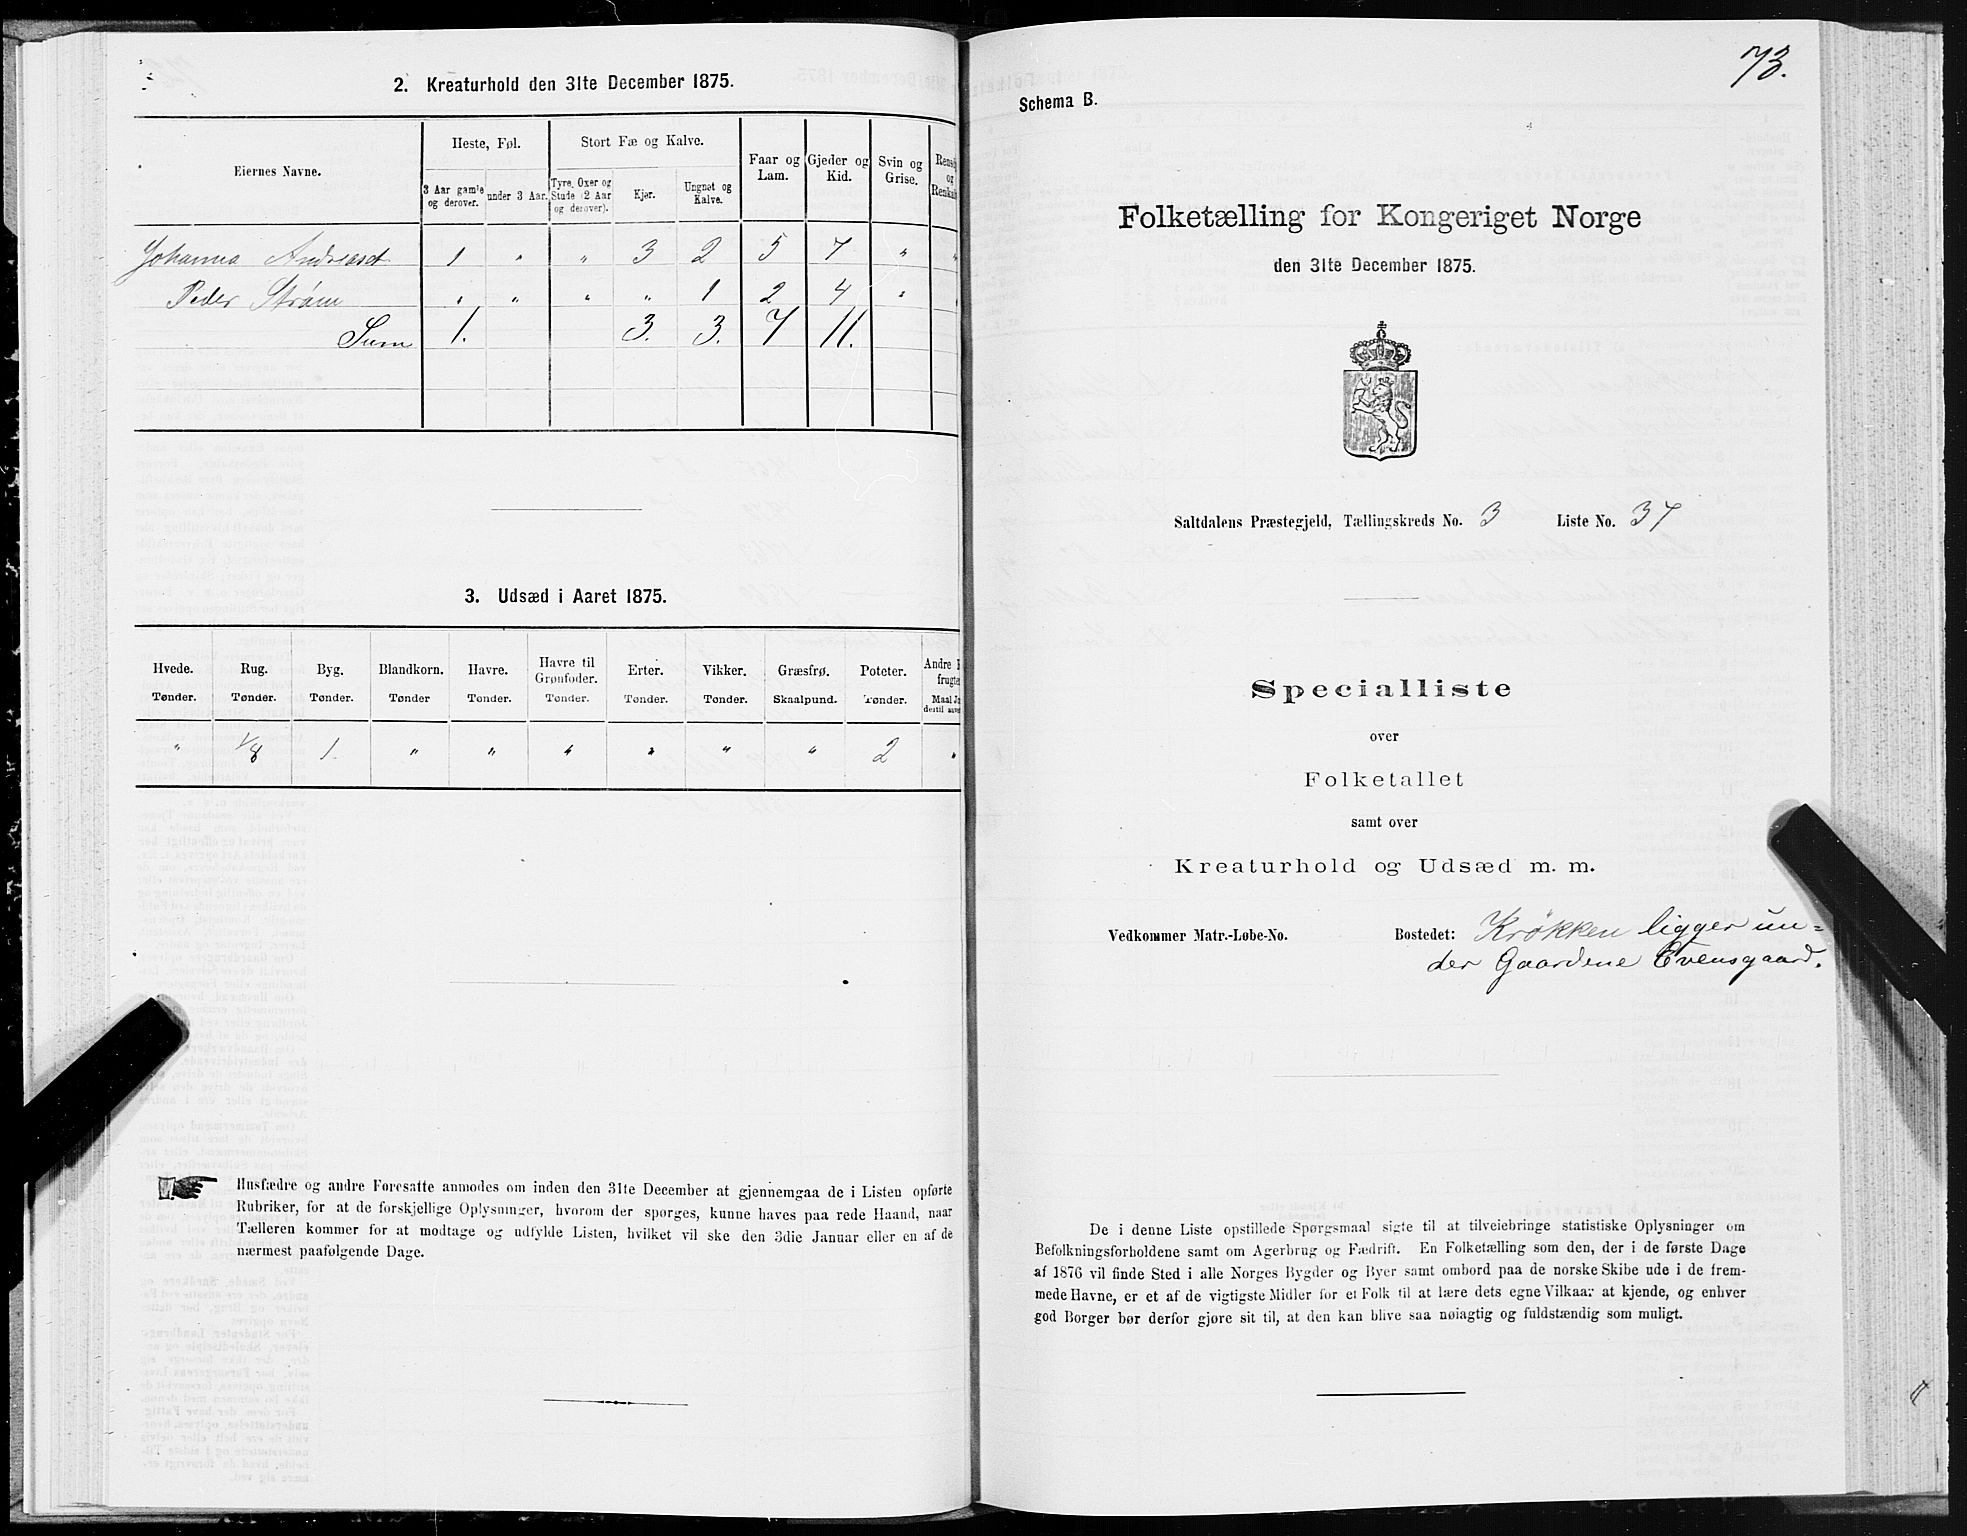 2. Kreaturhold den 31te December 1875.
Eiernes Navne.
Heste, Føl.
Stort Fæ og Kalve.
Faar og Lam.
Gjeder og Kid.
Svin og Grise.
3 Aar gamle og derover.
under 3 Aar.
Tyre, Oxer og Stude (2 Aar og derover).
Kjør.
Ungnøt og Kalve.
Johanna Andreasd 1 " " 3 2 5 7 " "
Peder Strøm " " " " 1 2 4 "
Sum 1. 3. 3. 7 11.
3. Udsæd i Aaret 1875.
Hvede. Rug. Byg. Blandkorn. Havre. Havre til Grønfoder. Erter. Vikker. Græsfrø. Poteter. Andre
Tønder. Tønder. Tønder. Tønder Tønder. Tønder. Tønder. Tønder. Skaalpund. Tønder.
" 1/8 1 " " " " " " 2 "
Husfædre og andre Foresatte anmodes om inden den 31te December at gjennemgaa de i Listen opførte
Rubriker, for at de forskjellige Oplysninger, hvorom der spørges, kunne haves paa rede Haand, naar
Tælleren kommer for at modtage og udfylde Listen, hvilket vil ske den 3die Januar eller en af de
nærmest paafølgende Dage.
73.
Schema B.
Folketælling for Kongeriget Norge
den 31te December 1875.
Saltdalens Præstegjeld, Tællingskreds No. 3 Liste No. 37
Specialliste
over
Folketallet
samt over
Kreaturhold og Udsæd m. m.
Vedkommer Matr.-Løbe-No. Bostedet: Krökken ligger un=
der Gaardene Evensgaard.
De i denne Liste opstillede Spørgsmaal sigte til at tilveiebringe statistiske Oplysninger om
Befolkningsforholdene samt om Agerbrug og Fædrift. En Folketælling som den, der i de første Dage
af 1876 vil finde Sted i alle Norges Bygder og Byer samt ombord paa de norske Skibe ude i de frem-
mede Havne, er et af de vigtigste Midler for et Folk til at lære dets egne Vilkaar at kjende, og enhver
god Borger bør derfor gjøre sit til, at den kan blive saa nøiagtig og fuldstændig som muligt.